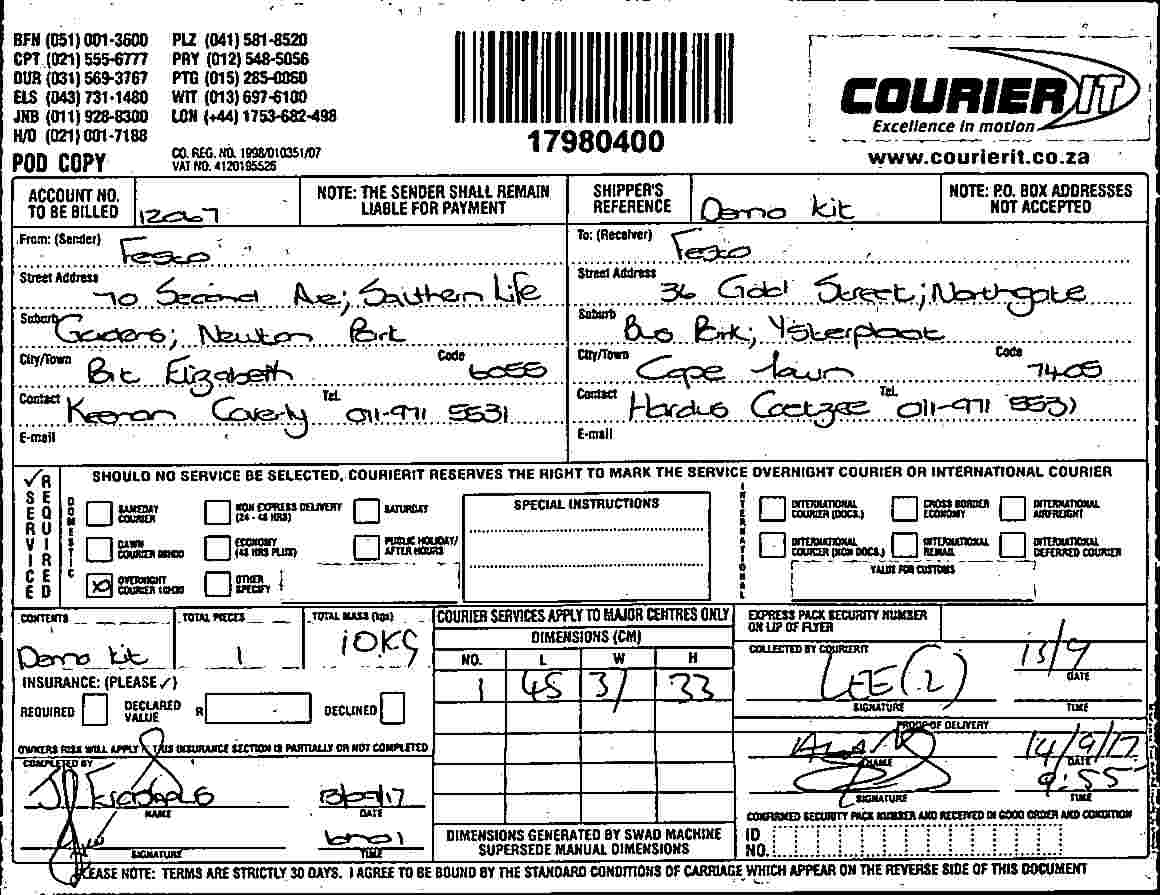 BFN (051) 001-3600 PLZ (041) 581-8520
CPT (021) 555-6777 PRY (012) 548-5056
DUR (031) 569-3767 PTG (015) 285-0060
ELS (043) 731-1480 WIT (013) 697-6100
JNB (011) 928-8300 LON (+44) 1753-682-498
H/O (021) 001-7188
POD COPY
CO. REG. NO. 1998/010351/07
VAT NO. 4120185526
17980400
COURIER IT
Excellence in motion
www.courierit.co.za
ACCOUNT NO. TO BE BILLED 12067
NOTE: THE SENDER SHALL REMAIN LIABLE FOR PAYMENT
SHIPPER'S REFERENCE Demo kit
NOTE: P.O. BOX ADDRESSES NOT ACCEPTED
From: (Sender) Fesco
Street Address 70 Second Ave; Southern Life
Suburb Gardens; Newton Park
City/Town Elizabeth Code 6055
Contact Keenan Caverly Tel. 011-971 5531
E-mail
To: (Receiver) Fesco
Street Address 36 Gold Street; Northgate
Suburb Bus Park; Ysterplaat
City/Town Cape Town Code 7405
Contact Hardus Coetzee Tel. 011-971 5531
E-mail
✓ SERVICE REQUIRED
SHOULD NO SERVICE BE SELECTED, COURIERIT RESERVES THE RIGHT TO MARK THE SERVICE OVERNIGHT COURIER OR INTERNATIONAL COURIER
DOMESTIC
SAMEDAY COURIER
NON EXPRESS DELIVERY (24 - 48 HRS)
SATURDAY
DAWN COURIER 08H00
ECONOMY (48 HRS PLUS)
PUBLIC HOLIDAY/ AFTER HOURS
X OVERNIGHT COURIER 10H30
OTHER SPECIFY
SPECIAL INSTRUCTIONS
INTERNATIONAL
INTERNATIONAL COURIER (DOCS.)
CROSS BORDER ECONOMY
INTERNATIONAL AIRFREIGHT
INTERNATIONAL COURIER (NON DOCS.)
INTERNATIONAL REMAIL
INTERNATIONAL DEFERRED COURIER
VALUE FOR CUSTOMS
CONTENTS Demo kit
TOTAL PIECES 1
TOTAL MASS (kgs) 10KG
INSURANCE: (PLEASE ✓)
REQUIRED
DECLARED VALUE R
DECLINED
OWNERS RISK WILL APPLY IF THIS INSURANCE SECTION IS PARTIALLY OR NOT COMPLETED
COMPLETED BY
NAME
13/09/17
DATE
SIGNATURE
TIME
COURIER SERVICES APPLY TO MAJOR CENTRES ONLY
DIMENSIONS (CM)
NO. L W H
1 45 31 33
DIMENSIONS GENERATED BY SWAD MACHINE SUPERSEDE MANUAL DIMENSIONS
EXPRESS PACK SECURITY NUMBER ON LIP OF FLYER
COLLECTED BY COURIERIT
LEE (2)
13/9
DATE
SIGNATURE
TIME
PROOF OF DELIVERY
NAME
14/9/17
DATE
9:55
SIGNATURE
TIME
CONFIRMED SECURITY PACK NUMBER AND RECEIVED IN GOOD ORDER AND CONDITION
ID NO.
PLEASE NOTE: TERMS ARE STRICTLY 30 DAYS. I AGREE TO BE BOUND BY THE STANDARD CONDITIONS OF CARRIAGE WHICH APPEAR ON THE REVERSE SIDE OF THIS DOCUMENT